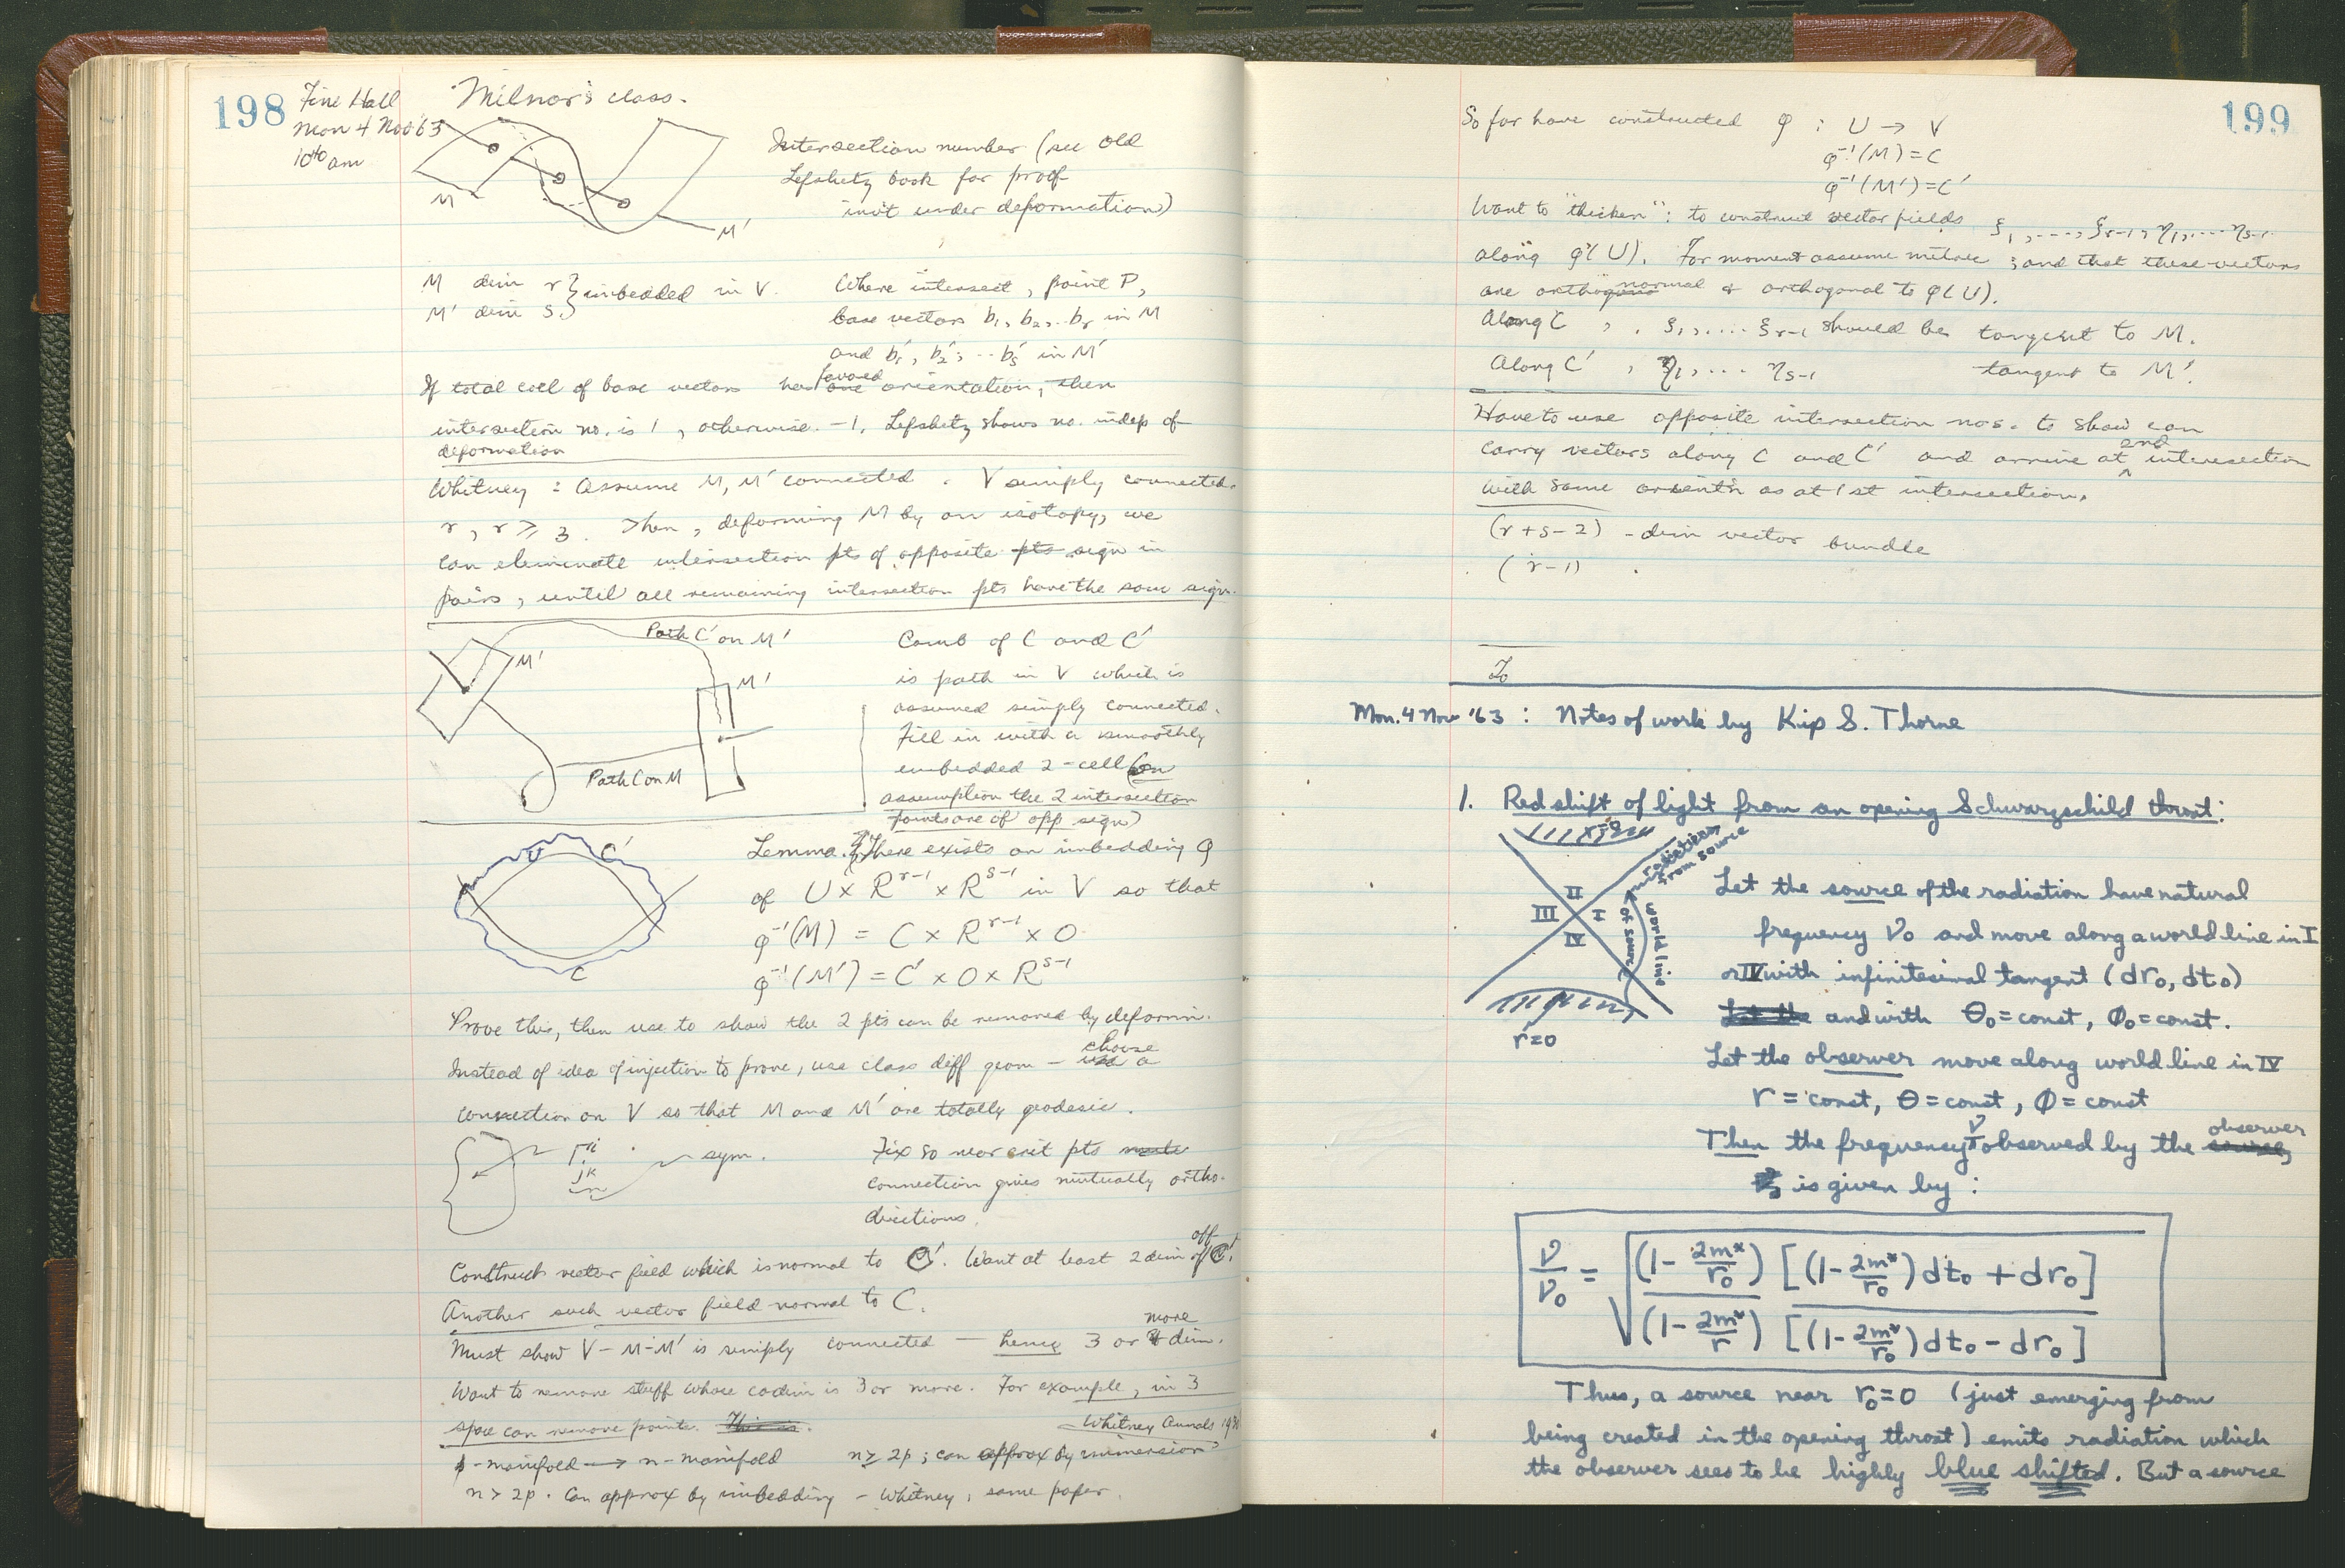 198
Fine Hall
Mon 4 Nov '63
10⁴⁰ am
Milnor's class.
M
M'
Intersection number (see old
Lefshetz book for proof
inv't under deformation)
M dim r } imbedded in V.
M' dim s. }
Where intersect, point P,
base vectors b₁, b₂, .. bᵣ in M
and b₁', b₂', ... bₛ' in M'
If total coll of base vectors has one orientation, then
intersection no. is 1, otherwise -1. Lefshetz shows no. indep of
deformation
Whitney: Assume M, M' connected. V simply connected.
r, r ≥ 3. Then, deforming M by an isotopy, we
can eliminate intersection pts of opposite pts sign in
pairs, until all remaining intersection pts have the same sign.
Path C' on M'
M'
M'
Path C on M
Comb of C and C'
is path in V which is
assumed simply connected.
Fill in with a smoothly
embedded 2-cell (on
assumption the 2 intersection
points are of opp sign)
U
C'
C
Lemma. There exists an imbedding φ
of U × R^{r-1} × R^{s-1} in V so that
φ⁻¹(M) = C × R^{r-1} × 0
φ⁻¹(M') = C' × 0 × R^{s-1}
Prove this, then use to show the 2 pts can be removed by deform'n.
Instead of idea of injection to prove, use class diff geom – use choose a
connection on V so that M and M' are totally geodesic.
Γ^i_{jk}
sym.
Fix so near crit pts
connection gives mutually ortho.
directions.
Construct vector field which is normal to C'. Want at least 2 dim off C'.
Another such vector field normal to C.
Must show V - M - M' is simply connected — hence 3 or more dim.
Want to remove stuff whose codim is 3 or more. For example, in 3
space can remove points. This is.
Whitney Annals 193
p-manifold → n-manifold n ≥ 2p; can approx by immersion
n > 2p. Can approx by imbedding – Whitney, same paper.
199
So far have constructed φ : U → V
φ⁻¹(M) = C
φ⁻¹(M') = C'
Want to "thicken": to construct vector fields ξ₁, ...., ξ_{r-1}, η₁, ... η_{s-1}
along φ(U). For moment assume metric; and that these vectors
are orthonormal & orthogonal to φ(U).
Along C, ξ₁, .... ξ_{r-1} should be tangent to M.
Along C', η₁, ... η_{s-1} tangent to M'.
Have to use opposite intersection nos. to show can
carry vectors along C and C' and arrive at 2nd intersection
with same orient'n as at 1st intersection.
(r+s-2) - dim vector bundle
(r-1)
To
Mon. 4 Nov '63: Notes of work by Kip S. Thorne
1. Redshift of light from an opening Schwarzschild throat:
r=0
radiation
from source
II
III
I
IV
world line
of source
r=0
Let the source of the radiation have natural
frequency ν₀ and move along a world line in I
or IV with infinitesimal tangent (dr₀, dt₀)
Let the and with θ₀ = const, φ₀ = const.
Let the observer move along world line in IV
r = const, θ = const, φ = const
Then the frequency ν observed by the source, observer
is given by:
ν/ν₀ = √((1 - 2m*/r₀) [(1 - 2m*/r₀)dt₀ + dr₀] / (1 - 2m*/r) [(1 - 2m*/r₀)dt₀ - dr₀])
Thus, a source near r₀=0 (just emerging from
being created in the opening throat) emits radiation which
the observer sees to be highly blue shifted. But a source